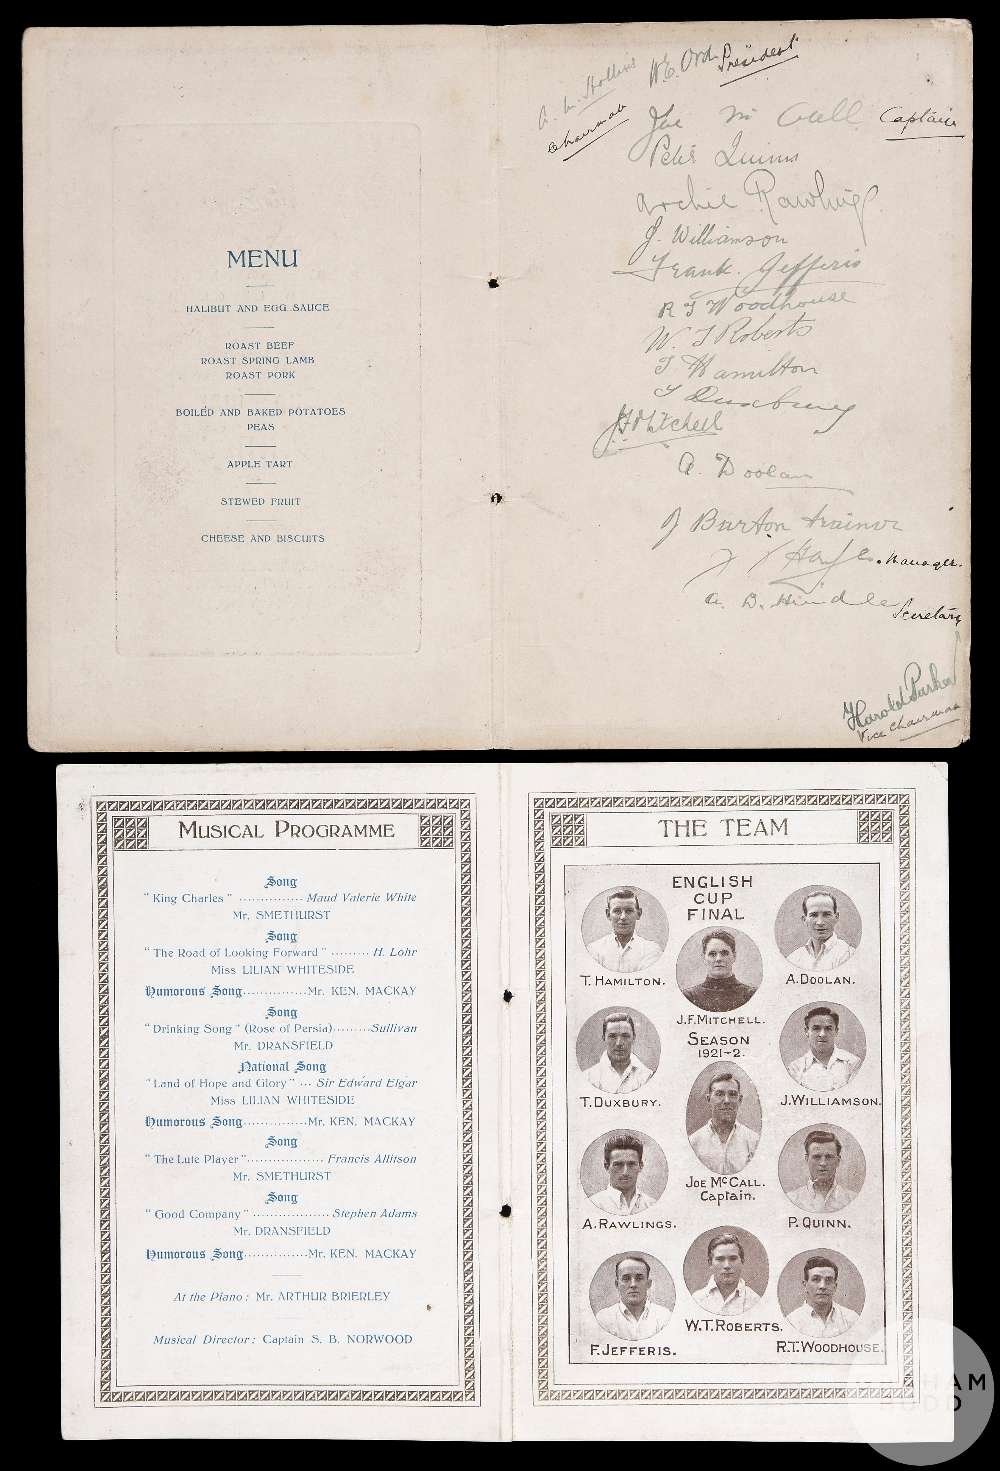 MENU
HALIBUT AND EGG SAUCE
ROAST BEEF
ROAST SPRING LAMB
ROAST PORK
BOILED AND BAKED POTATOES
PEAS
APPLE TART
STEWED FRUIT
CHEESE AND BISCUITS
A. M. Hollins
Chairman
W.E. Ord President
Joe McCall Captain
Peter Quinn
Archie Rawlings
J. Williamson
Frank Jefferis
R T Woodhouse
W. T Roberts
T Hamilton
T Duxbury
J F Mitchell
A. Doolan
J Burton trainer
Manager
A. B. Hindle Secretary
Harold Parker
Vice Chairman
MUSICAL PROGRAMME
Song
"King Charles" ............... Maud Valerie White
Mr. SMETHURST
Song
"The Road of Looking Forward" ......... H. Lohr
Miss LILIAN WHITESIDE
Humorous Song...............Mr. KEN. MACKAY
Song
"Drinking Song" (Rose of Persia).........Sullivan
Mr. DRANSFIELD
National Song
"Land of Hope and Glory" ... Sir Edward Elgar
Miss LILIAN WHITESIDE
Humorous Song...............Mr. KEN. MACKAY
Song
"The Lute Player".................. Francis Allitson
Mr. SMETHURST
Song
"Good Company" .................. Stephen Adams
Mr. DRANSFIELD
Humorous Song...............Mr. KEN. MACKAY
At the Piano: Mr. ARTHUR BRIERLEY
Musical Director: Captain S. B. NORWOOD
THE TEAM
ENGLISH
CUP
FINAL
T. HAMILTON.
A. DOOLAN.
J.F. MITCHELL.
SEASON
1921-2.
T. DUXBURY.
J. WILLIAMSON.
JOE McCALL.
Captain.
A. RAWLINGS.
P. QUINN.
W.T. ROBERTS.
F. JEFFERIS.
R.T. WOODHOUSE.
GRAHAM
BUDD